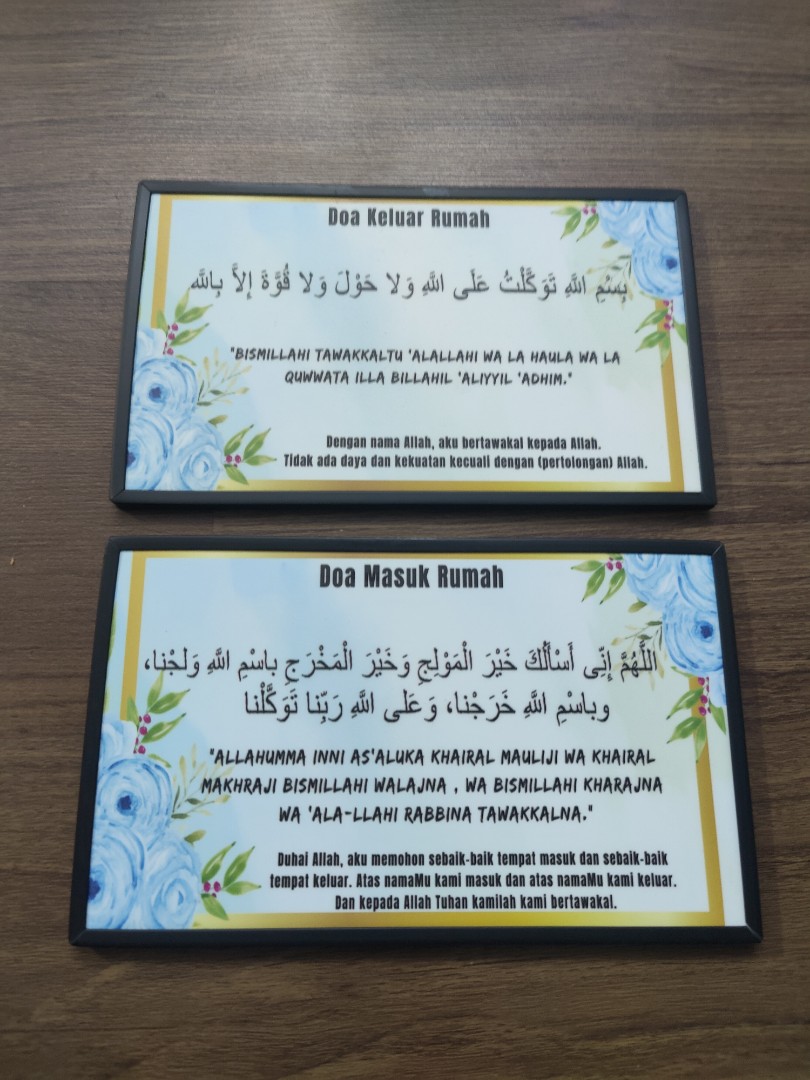 Doa Keluar Rumah
بِسْمِ اللَّهِ تَوَكَّلْتُ عَلَى اللَّهِ وَلا حَوْلَ وَلا قُوَّةَ إِلاَّ بِاللَّه
"BISMILLAHI TAWAKKALTU 'ALALLAHI WA LA HAULA WA LA
QUWWATA ILLA BILLAHIL 'ALIYYIL 'ADHIM."
Dengan nama Allah, aku bertawakal kepada Allah.
Tidak ada daya dan kekuatan kecuali dengan (pertolongan) Allah.
Doa Masuk Rumah
اللَّهُمَّ إِنِّى أَسْأَلُكَ خَيْرَ الْمَوْلِجِ وَخَيْرَ الْمَخْرَجِ باسْمِ اللَّهِ وَلَجْنا،
وباسْمِ اللَّهِ خَرَجْنا، وَعَلَى اللَّهِ رَبِّنا تَوَكَّلْنا
"ALLAHUMMA INNI AS'ALUKA KHAIRAL MAULIJI WA KHAIRAL
MAKHRAJI BISMILLAHI WALAJNA , WA BISMILLAHI KHARAJNA
WA 'ALA-LLAHI RABBINA TAWAKKALNA."
Duhai Allah, aku memohon sebaik-baik tempat masuk dan sebaik-baik
tempat keluar. Atas namaMu kami masuk dan atas namaMu kami keluar.
Dan kepada Allah Tuhan kamilah kami bertawakal.